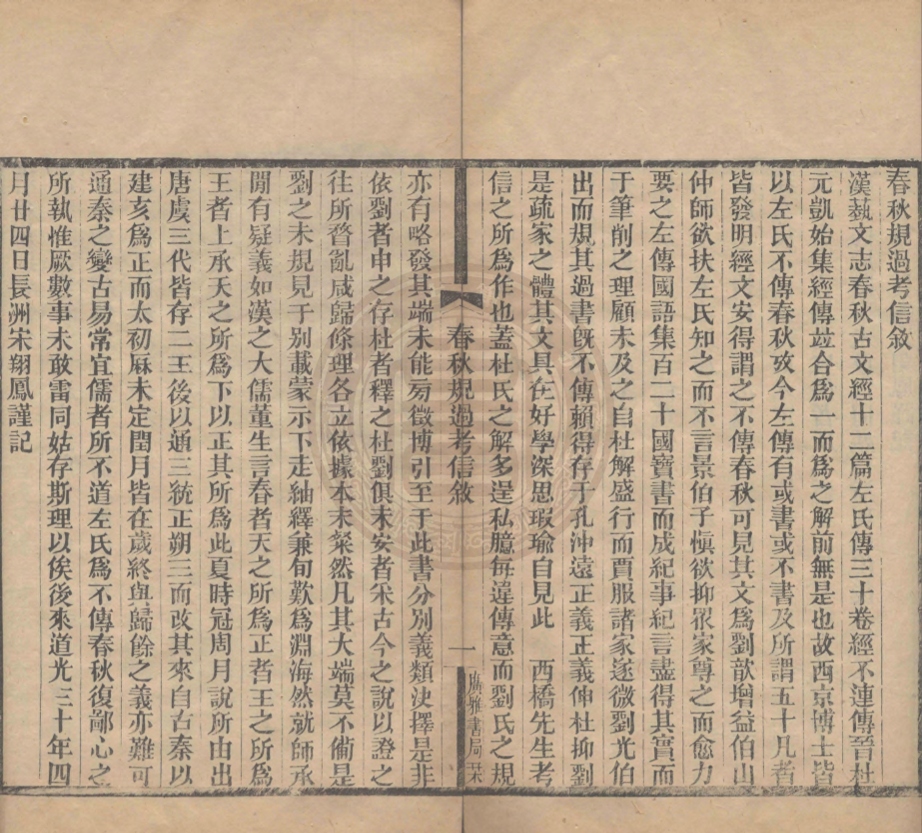 春秋規過考信敘
漢蓺文志春秋古文經十二篇左氏傳三十卷經不連傳晉杜
元凱始集經傳竝合爲一而爲之解前無是也故西京博士皆
以左氏不傳春秋攷今左傳有或書或不書及所謂五十凡者
皆發明經文安得謂之不傳春秋可見其文爲劉歆增益伯山
仲師欲扶左氏知之而不言景伯子愼欲抑眾家尊之而愈力
要之左傳國語集百二十國寶書而成紀事紀言盡得其實而
于筆削之理顧未及之自杜解盛行而賈服諸家遂微劉光伯
出而規其過書旣不傳賴得存于孔沖遠正義正義伸杜抑劉
是疏家之體其文具在好學深思瑕瑜自見此　西橋先生考
信之所爲作也蓋杜氏之解多逞私臆每違傳意而劉氏之規
春秋規過考信敘　一　廣雅書局栞
亦有略發其端未能菊徵博引至于此書分別義類決擇是非
依劉者申之存杜者釋之杜劉俱未安者宋古今之說以證之
往所瞀亂咸歸條理各立依據本末粲然凡其大端莫不備是
劉之未規見于別載蒙示下走紬繹兼旬歎爲淵海然就師承
閒有疑義如漢之大儒董生言春者天之所爲正者王之所爲
王者上承天之所爲下以正其所爲此夏時冠周月說所由出
唐虞三代皆存二王後以通三統正朔三而改其來自古秦以
建亥爲正而太初厤未定閏月皆在歲終與歸餘之義亦難可
通秦之變古易常宜儒者所不道左氏爲不傳春秋復鄙心之
所執惟厥數事未敢雷同姑存斯理以俟後來道光三十年四
月廿四日長洲宋翔鳳謹記